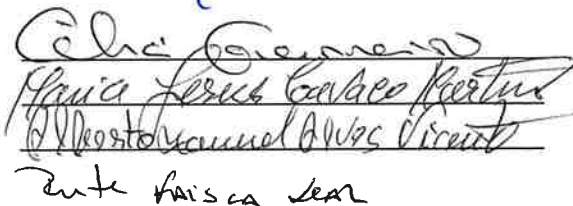 Célia Guerreiro
Maria Jesus Cavaco Martins
Alberto Manuel Alves Vicente
Rute FAISCA LEAL